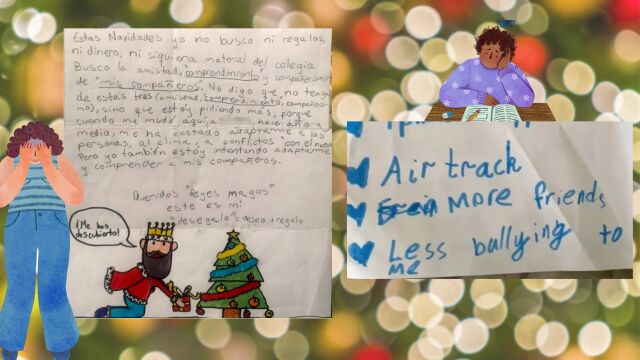 Estas Navidades yo no busco ni regalos,
ni dinero, ni siquiera material del colegio
Busco la amistad, comprendimiento y compañerismo
de "mis compañeros. No digo que no tenga
de estas tres (amistad, comprendimiento, compañeris-
mo), sino que estoy pidiendo más, porque
cuando me mudé aquí, a hace año y
medio, me ha costado adaptarme a las
personas, al clima, a conflictos con el
Pero yo también estoy intentando adaptarme
y comprender a mis compañeros.
Queridos "Reyes Magos"
este es mi
"desegalo" = deseo + regalo
¡Me has
descubierto!
Air track
More friends
Less bullying to
me